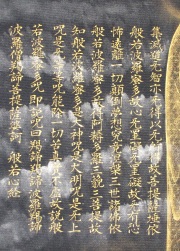 集滅道無智亦無得以無所得故菩提薩埵依
般若波羅蜜多故心無罣礙無罣礙故無有恐
怖遠離一切顛倒夢想究竟涅槃三世諸佛依
般若波羅蜜多故得阿耨多羅三藐三菩提故
知般若波羅蜜多是大神咒是大明咒是無上
咒是無等等咒能除一切苦真實不虛故說般
若波羅蜜多咒即說咒曰羯諦羯諦波羅羯諦
波羅僧羯諦菩提薩婆訶 般若心經